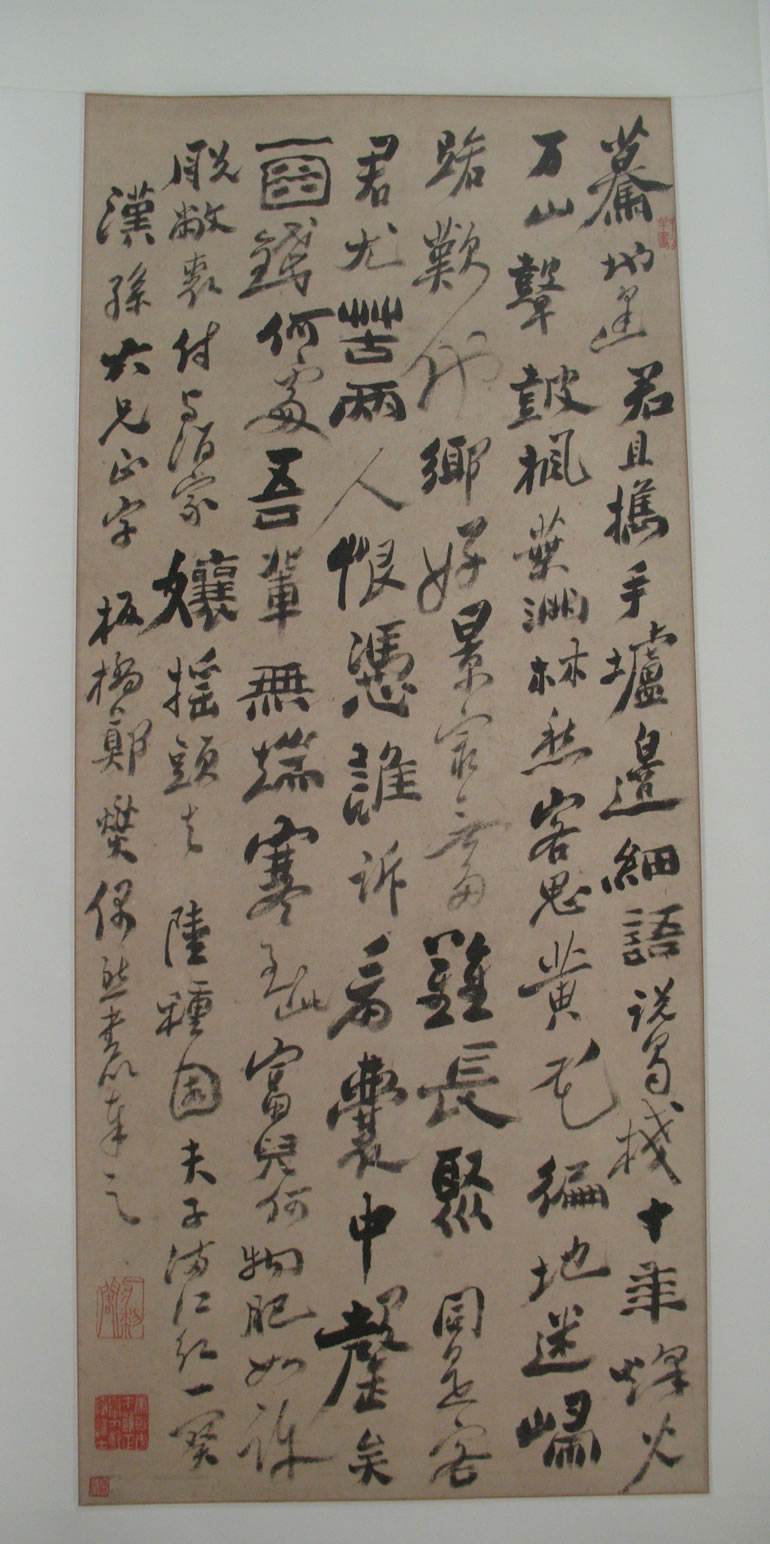 驀地逢君且攜手壚邊細語說蜀棧十年烽火
万山鼙鼓楓葉滿林愁客思黃花徧地迷歸
路歎他鄉好景最無多難長聚同是客
君尤苦兩人恨憑誰訴看囊中罄矣
酒錢何處吾輩無端寒至此富兒何物肥如許
脫敝裘付与酒家孃搖頭去陸種園夫子滿江紅一闋
漢孫大兄正字板橋鄭燮偶然書奉之